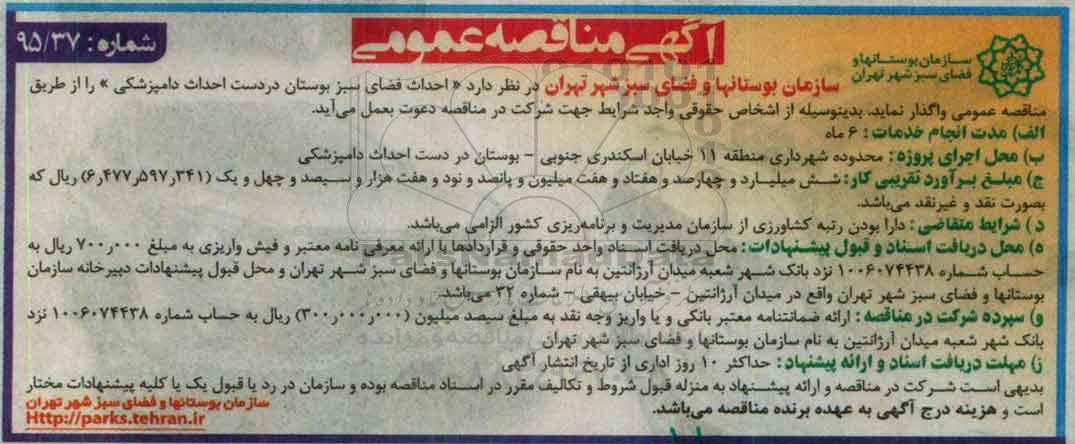 آگهی مناقصه عمومی
شماره: ۹۵/۳۷
سازمان بوستانها و
فضای سبز شهر تهران
سازمان بوستانها و فضای سبز شهر تهران در نظر دارد « احداث فضای سبز بوستان دردست احداث دامپزشکی » را از طریق
مناقصه عمومی واگذار نماید. بدینوسیله از اشخاص حقوقی واجد شرایط جهت شرکت در مناقصه دعوت بعمل می‌آید.
الف) مدت انجام خدمات: ۶ ماه
ب) محل اجرای پروژه: محدوده شهرداری منطقه ۱۱ خیابان اسکندری جنوبی – بوستان در دست احداث دامپزشکی
ج) مبلغ برآورد تقریبی کار: شش میلیارد و چهارصد و هفتاد و هفت میلیون و پانصد و نود و هفت هزار و سیصد و چهل و یک (۶٫۴۷۷٫۵۹۷٫۳۴۱) ریال که
بصورت نقد و غیرنقد می‌باشد.
د) شرایط متقاضی: دارا بودن رتبه کشاورزی از سازمان مدیریت و برنامه‌ریزی کشور الزامی می‌باشد.
ه) محل دریافت اسناد و قبول پیشنهادات: محل دریافت اسناد واحد حقوقی و قراردادها با ارائه معرفی نامه معتبر و فیش واریزی به مبلغ ۷۰۰٫۰۰۰ ریال به
حساب شماره ۱۰۰۶۰۷۴۴۳۸ نزد بانک شهر شعبه میدان آرژانتین به نام سازمان بوستانها و فضای سبز شهر تهران و محل قبول پیشنهادات دبیرخانه سازمان
بوستانها و فضای سبز شهر تهران واقع در میدان آرژانتین – خیابان بیهقی – شماره ۳۲ می‌باشد.
و) سپرده شرکت در مناقصه: ارائه ضمانتنامه معتبر بانکی و یا واریز وجه نقد به مبلغ سیصد میلیون (۳۰۰٫۰۰۰٫۰۰۰) ریال به حساب شماره ۱۰۰۶۰۷۴۴۳۸ نزد
بانک شهر شعبه میدان آرژانتین به نام سازمان بوستانها و فضای سبز شهر تهران
ز) مهلت دریافت اسناد و ارائه پیشنهاد: حداکثر ۱۰ روز اداری از تاریخ انتشار آگهی
بدیهی است شرکت در مناقصه و ارائه پیشنهاد به منزله قبول شروط و تکالیف مقرر در اسناد مناقصه بوده و سازمان در رد یا قبول یک یا کلیه پیشنهادات مختار
است و هزینه درج آگهی به عهده برنده مناقصه می‌باشد.
سازمان بوستانها و فضای سبز شهر تهران
Http://parks.tehran.ir